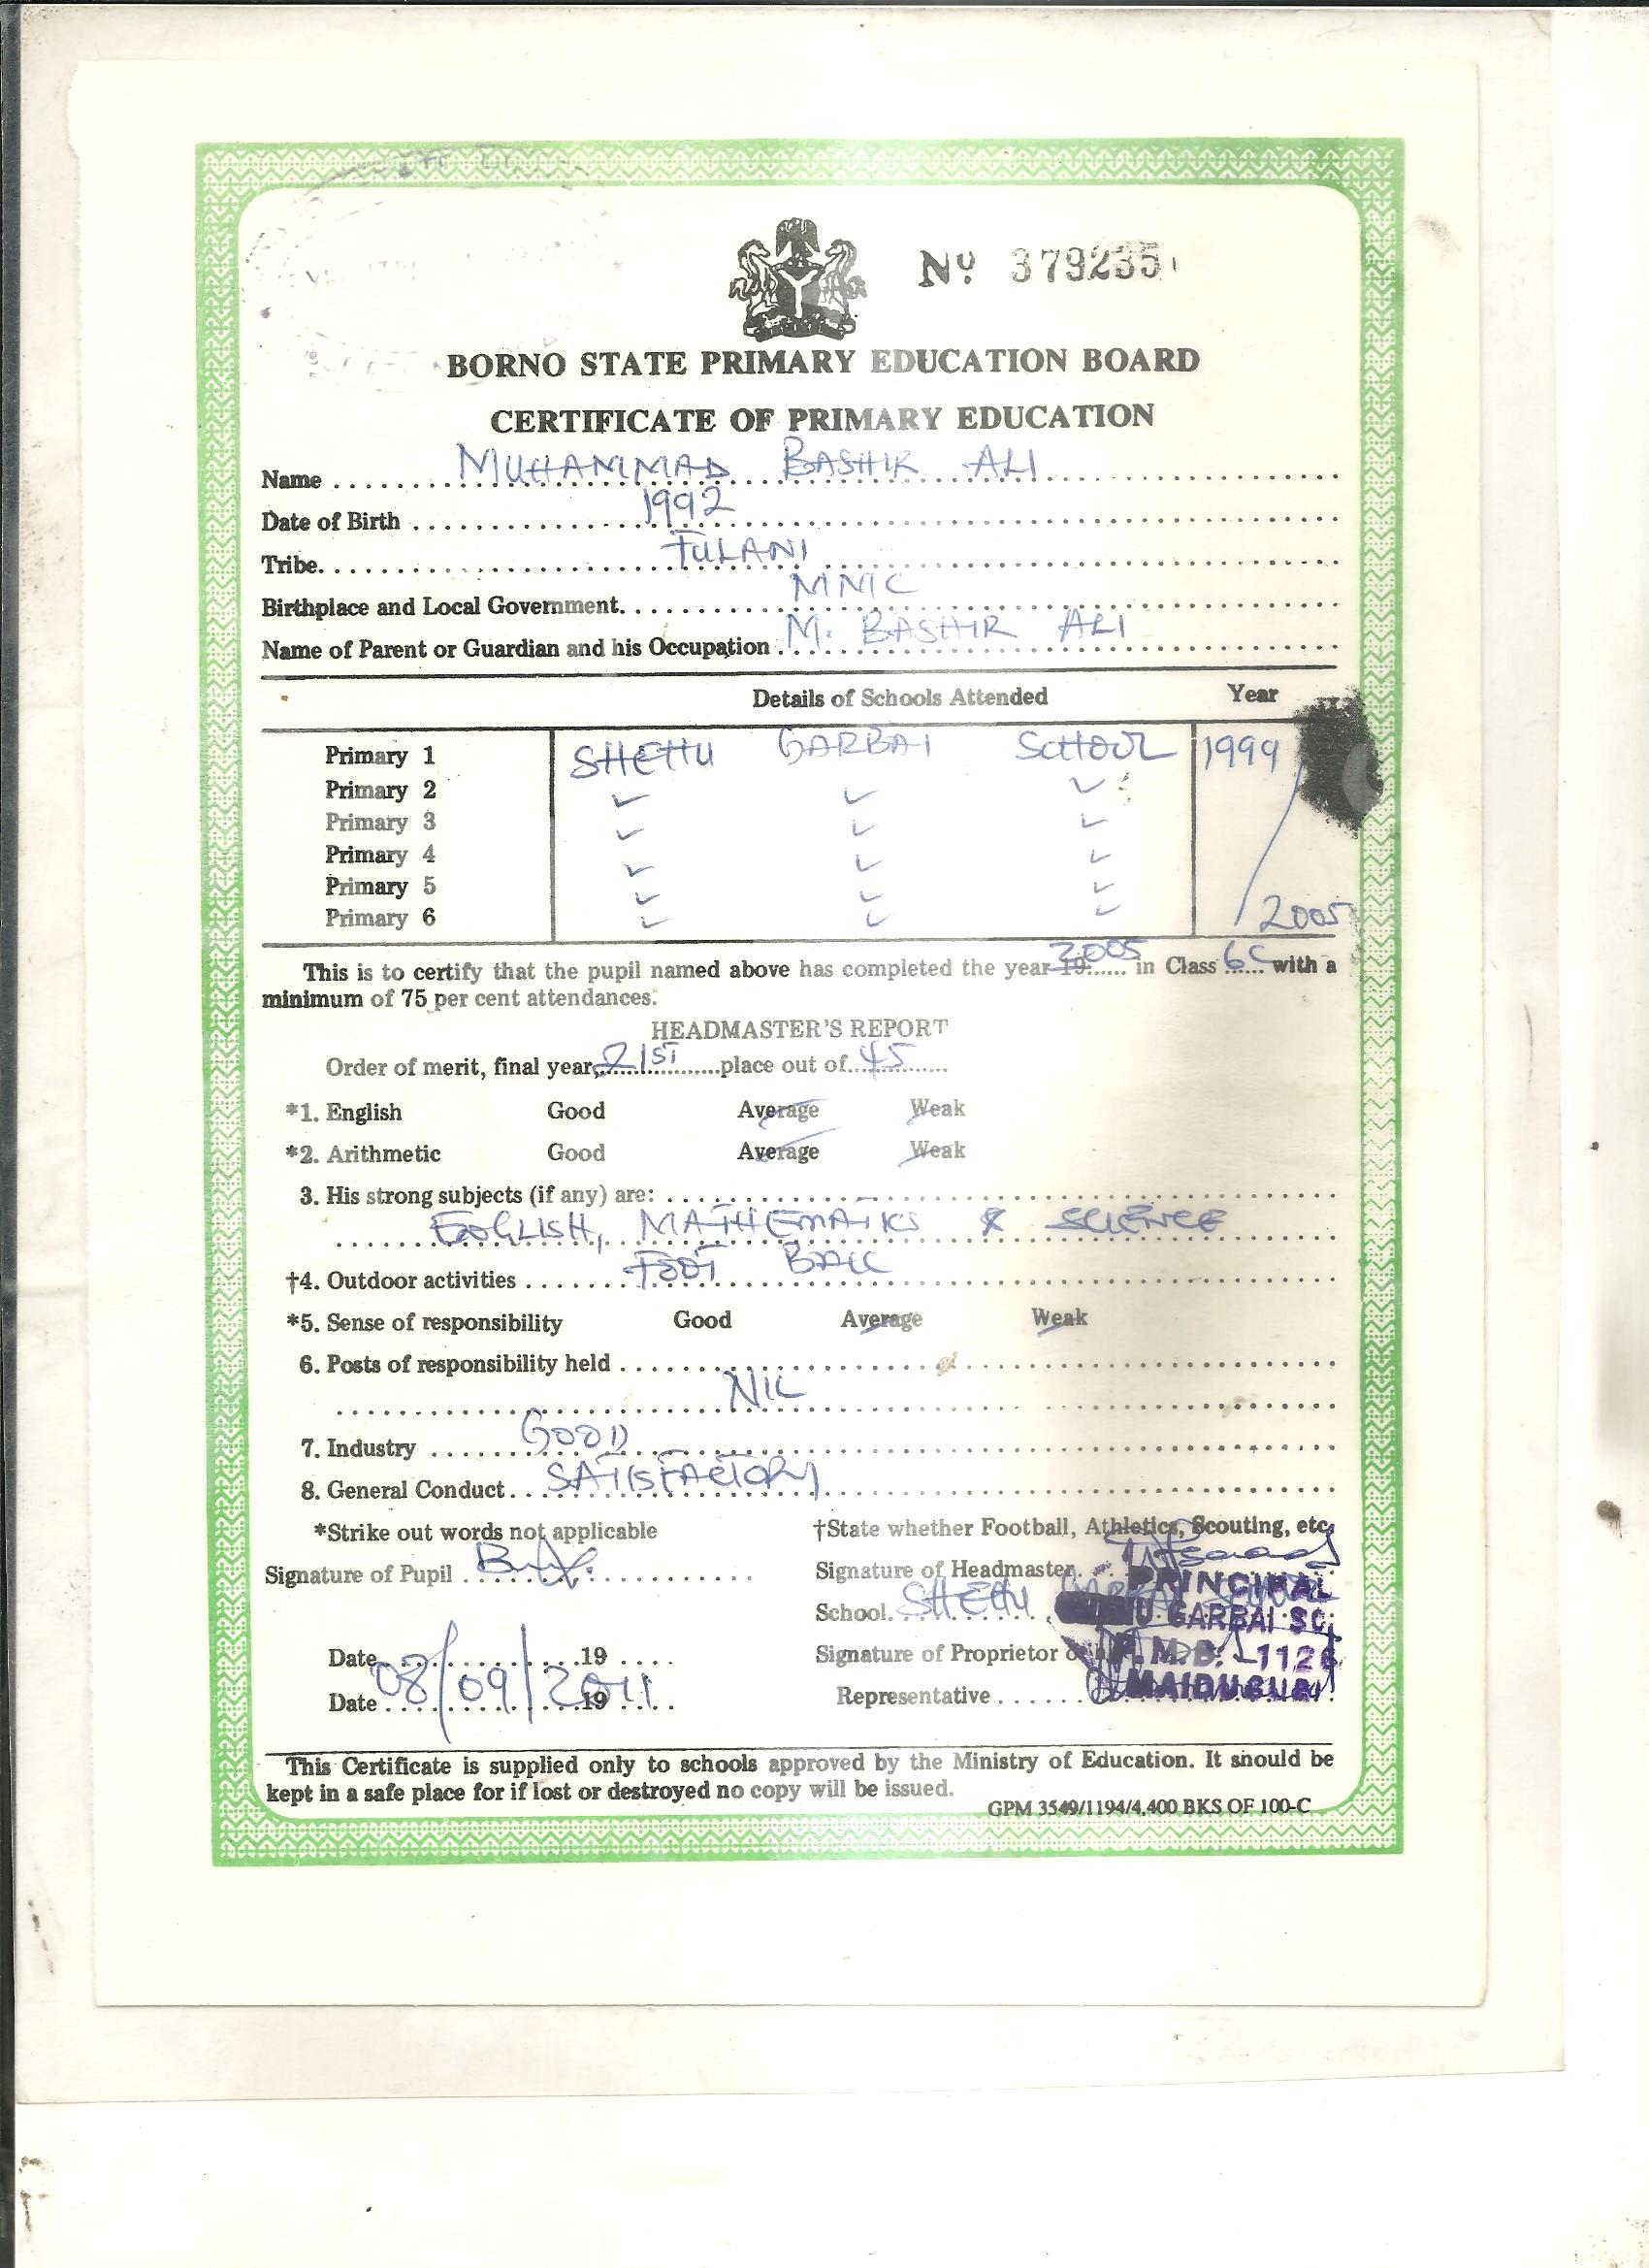 Nº 379235
BORNO STATE PRIMARY EDUCATION BOARD
CERTIFICATE OF PRIMARY EDUCATION
Name MUHAMMAD BASHIR ALI
Date of Birth 1992
Tribe FULANI
Birthplace and Local Government MMC
Name of Parent or Guardian and his Occupation M. BASHIR ALI
Details of Schools Attended Year
Primary 1 SHEHU GARBAI SCHOOL 1999
Primary 2
Primary 3
Primary 4
Primary 5
Primary 6 2005
This is to certify that the pupil named above has completed the year 19 2005 in Class 6C with a
minimum of 75 per cent attendances.
HEADMASTER'S REPORT
Order of merit, final year 21ST place out of 45
*1. English Good Average Weak
*2. Arithmetic Good Average Weak
3. His strong subjects (if any) are:
ENGLISH, MATHEMATICS & SCIENCE
†4. Outdoor activities FOOT BALL
*5. Sense of responsibility Good Average Weak
6. Posts of responsibility held
NIL
7. Industry GOOD
8. General Conduct SATISFACTORY
*Strike out words not applicable †State whether Football, Athletics, Scouting, etc.
Signature of Pupil Signature of Headmaster
PRINCIPAL
School SHEHU GARBAI
U GARBAI SC.
Date 19 Signature of Proprietor or
P.M.B. 1126
Date 08/09/2011 19 Representative
MAIDUGURI
This Certificate is supplied only to schools approved by the Ministry of Education. It should be
kept in a safe place for if lost or destroyed no copy will be issued.
GPM 3549/1194/4,400 BKS OF 100-C